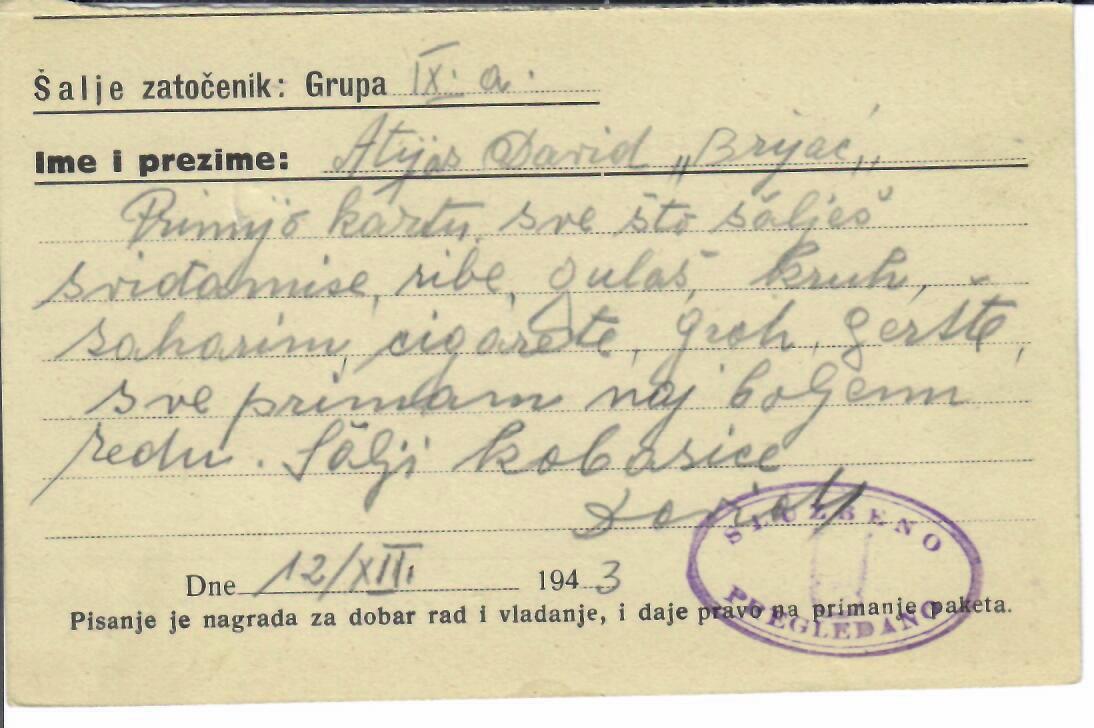 Šalje zatočenik: Grupa IX. a.
Ime i prezime: Atijas David „Brijač„
Primijo kartu. sve što sălješ
sviđamise, ribe, gulaš, kruh,
saharin, cigarete, groh, geršte,
sve primam naj boljemu
redu. Sălji kobasice
David
SLUŽBENO
Dne 12/XII. 1943
Pisanje je nagrada za dobar rad i vladanje, i daje pravo na primanje paketa.
PREGLEDANO